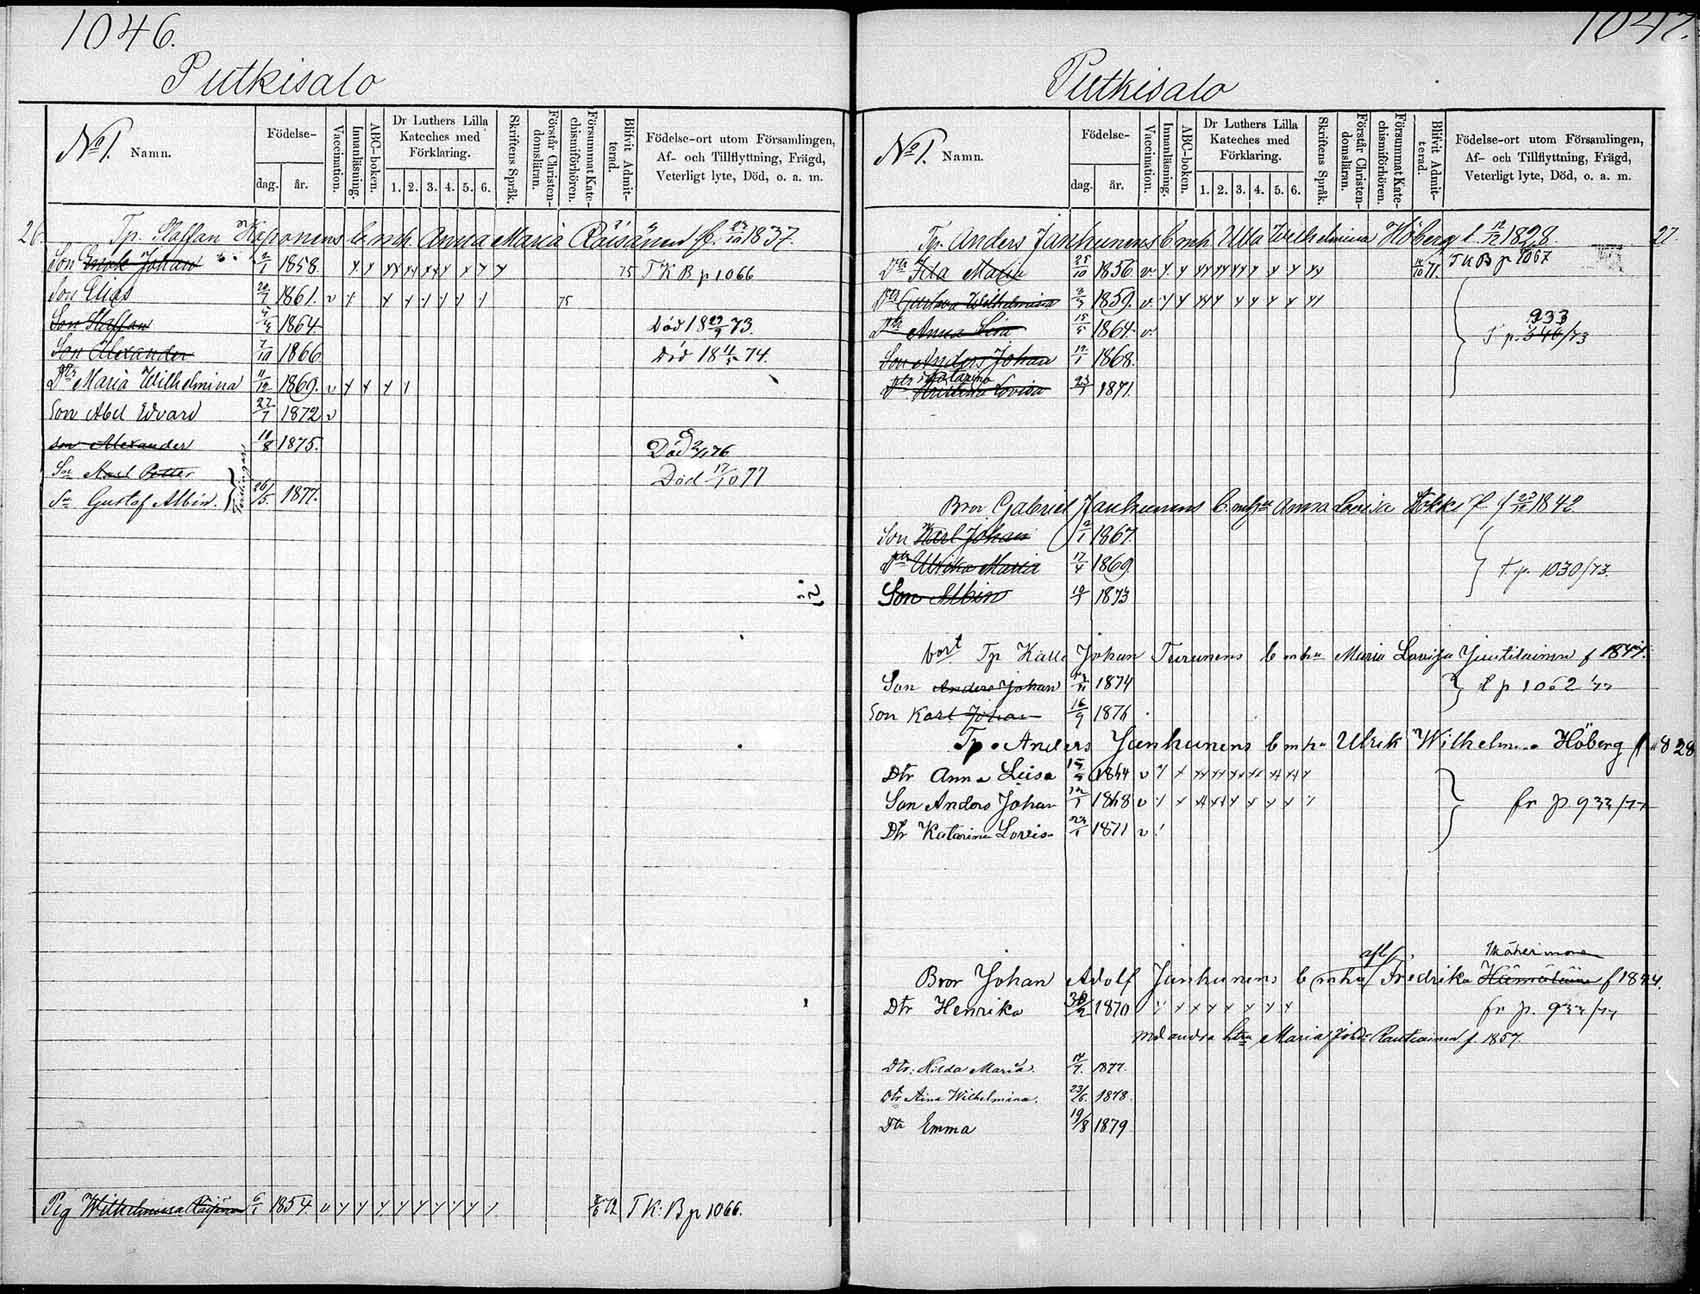 1046.
Putkisalo
No 1. Namn.
Födelse-
dag. år.
Vaccination.
Innanläsning.
ABC-boken.
Dr Luthers Lilla Kateches med Förklaring.
1. 2. 3. 4. 5. 6.
Skriftens Språk.
Förstår Christendomsläran.
Försummat Katechismiförhören.
Blifvit Admitterad.
Födelse-ort utom Församlingen, Af- och Tillflyttning, Frägd, Veterligt lyte, Död, o. a. m.
26. Tp. Staffan Kaponens b. mh. Anna Maria Räisänen f. 1837.
Son Enok Johan 2/1 1858. 75 T K B p 1066
Son Elias 1861. v 75
Son Staffan 1864 Död 18 73.
Son Alexander 7/10 1866 Död 18 74.
Dtr Maria Wilhelmina 11/12 1869. v
Son Abel Edvard 27/7 1872 v
Son Alexander 10/8 1875. Död 76
Son Karl Petter Död 17/10 77
Sn Gustaf Albin. 26/5 1877.
Tvillingar
Pig Wilhelmina 6/1 1854 v 72 T K. B p 1066.
1047.
Putkisalo
No 1. Namn.
Födelse-
dag. år.
Vaccination.
Innanläsning.
ABC-boken.
Dr Luthers Lilla Kateches med Förklaring.
1. 2. 3. 4. 5. 6.
Skriftens Språk.
Förstår Christendomsläran.
Försummat Katechismiförhören.
Blifvit Admitterad.
Födelse-ort utom Församlingen, Af- och Tillflyttning, Frägd, Veterligt lyte, Död, o. a. m.
Tp. Anders Janhunens b. mh. Ulla Wilhelmina Höberg f. 1828. 27.
Dtr Ida Maria 25/10 1856 v. 71. T K B p 1067
Dtr Gustava Wilhelmina 1859. v.
Dtr Anna Lisa 15/5 1864. v.
933
T p. 346/73
Son Anders Johan 12/1 1868.
Katarina
Dtr Kristina Lovisa 23/1 1871.
Bror Gabriel Janhunens b. mhu Anna Lovisa Kokki f 1842
Son Karl Johan 2/1 1867
Dtr Ulrika Maria 17/4 1869
T p. 1030/73.
Son Albin 1873
bort Tp Kalle Johan Turunens b mhu Maria Lovisa Juutilainen f 1847.
Son Anders Johan 1874 T p 1062 77
Son Karl Johan 16/9 1876
Tp. Anders Janhunens b mhu Ulrik Wilhelmina Höberg f 1828
Dtr Anna Leisa 15/5 1864 v
Son Anders Johan 12/1 1868 v fr p. 933/77
Dtr Katarina Lovisa 23/1 1871 v
afl.
Bror Johan Adolf Janhunens b mhu Fredrika f 1844.
Dtr Henrika 1870 fr p. 933/77
Med andra htru Maria Rautiainen f. 1857.
Dtr. Hilda Maria. 1877.
Dtr Aina Wilhelmina. 23/6. 1878.
Dtr Emma 19/8 1879